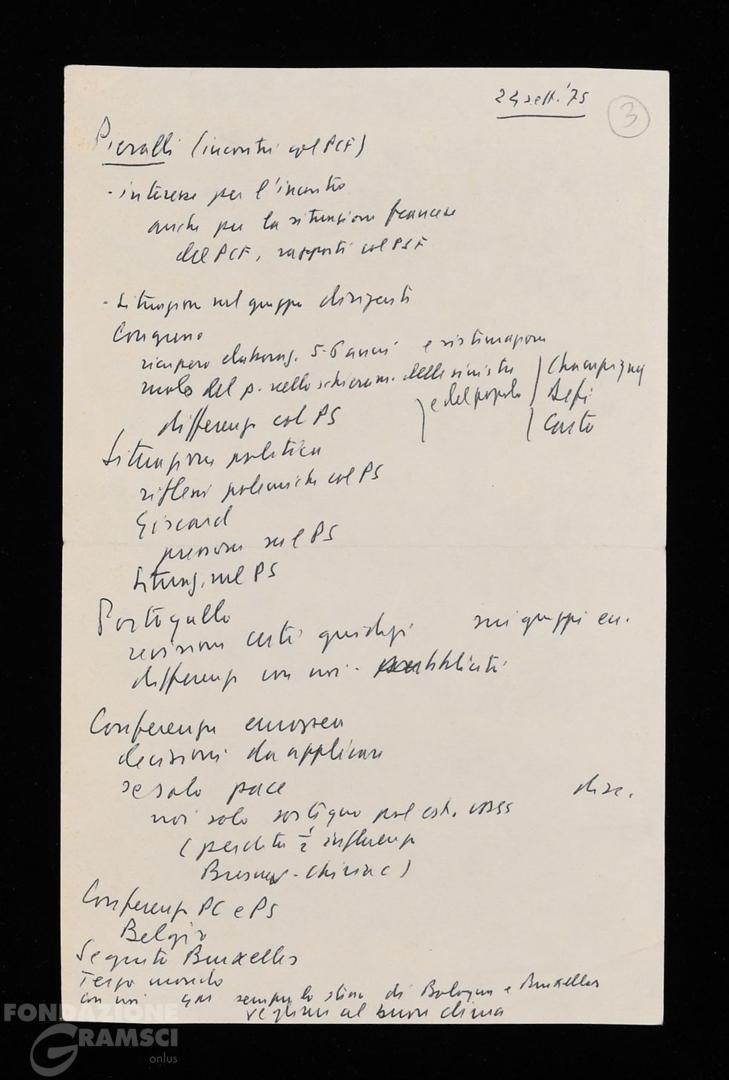 24 sett. '75
3
Pieralli (incontri col PCF)
- interesse per l'incontro
anche per la situazione francese
del PCF, rapporti col PSF
- Situazione nel gruppo dirigenti
Congresso
recupero elaboraz. 5-6 anni e sistemazione
ruolo del p. nello schieram. delle sinistre
e del popolo
Champigny
Defi
Carta
differenze col PS
Situazione politica
riflessi polemiche col PS
Giscard
pressioni sul PS
Situaz. nel PS
Portogallo
sui gruppi eu.
revisione certi giudizi
differenze con noi - pubblicità
Conferenza europea
decisioni da applicare
se solo pace
disc.
noi solo sostegno pol. est. URSS
(perdita di influenza
- Chirac)
Conferenza PC e PS
Belgio
Seguito Bruxelles
Terzo mondo
con noi sempre lo stesso di Bologna e Bruxelles
vogliamo al buon clima
FONDAZIONE
GRAMSCI
onlus